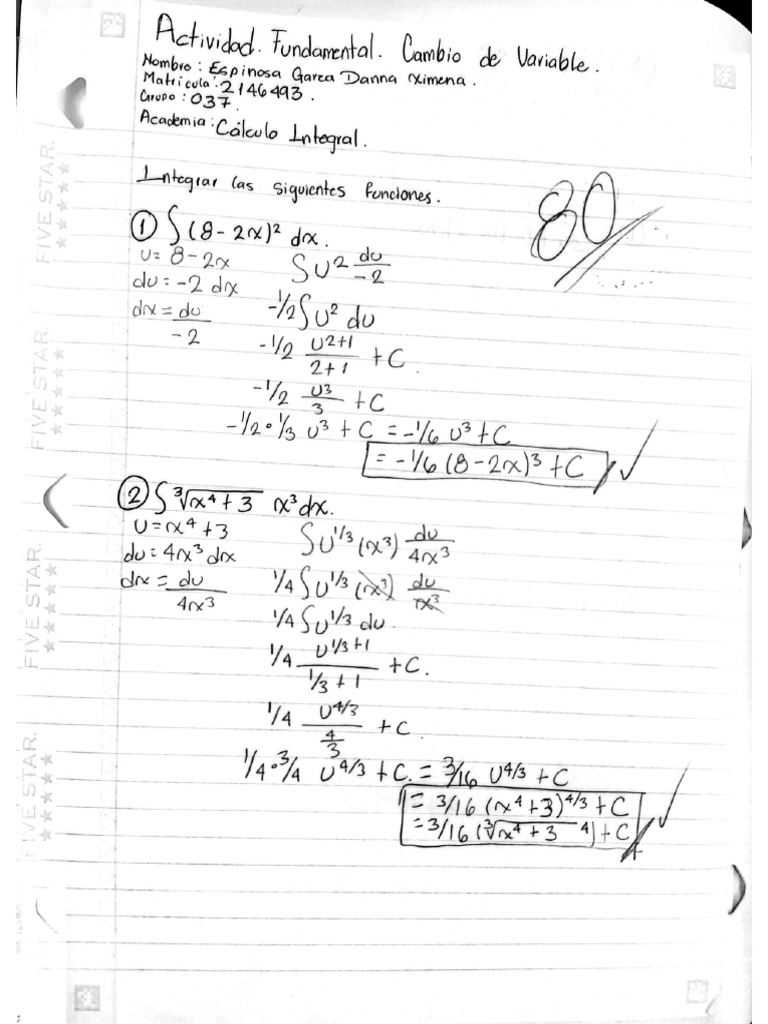 Actividad. Fundamental. Cambio de Variable.
Nombre: Espinosa Garza Danna Ximena.
Matricula: 2146493.
Grupo: 037.
Academia: Cálculo Integral.
Integrar las siguientes funciones.
80
① ∫(8-2x)² dx.
u = 8-2x
∫u² du/-2
du = -2 dx
dx = du/-2
-1/2 ∫u² du
-1/2 u^(2+1)/(2+1) + C
-1/2 u³/3 + C
-1/2 • 1/3 u³ + C = -1/6 u³ + C
= -1/6 (8-2x)³ + C
② ∫ ³√(x⁴+3) x³dx.
u = x⁴+3
∫u^(1/3) (x³) du/4x³
du = 4x³ dx
dx = du/4x³
1/4 ∫u^(1/3) (x³) du/x³
1/4 ∫u^(1/3) du.
1/4 u^(1/3+1)/(1/3+1) + C.
1/4 u^(4/3)/(4/3) + C
1/4 • 3/4 u^(4/3) + C. = 3/16 u^(4/3) + C
= 3/16 (x⁴+3)^(4/3) + C
= 3/16 (³√(x⁴+3) ⁴) + C
FIVE STAR.
FIVE STAR.
FIVE STAR.
FIVE STAR.